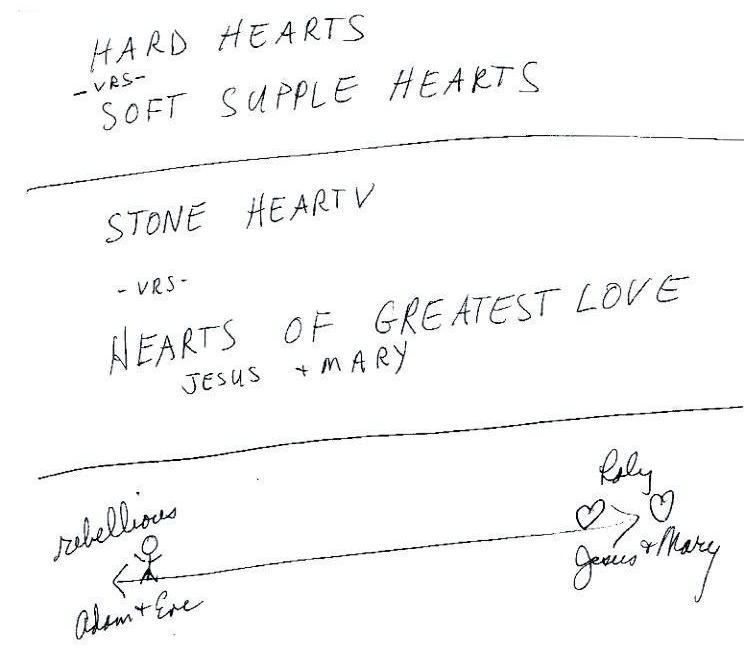 HARD HEARTS
-VRS-
SOFT SUPPLE HEARTS
STONE HEART V
-VRS-
HEARTS OF GREATEST LOVE
JESUS + MARY
Holy
rebellious
Jesus + Mary
Adam + Eve